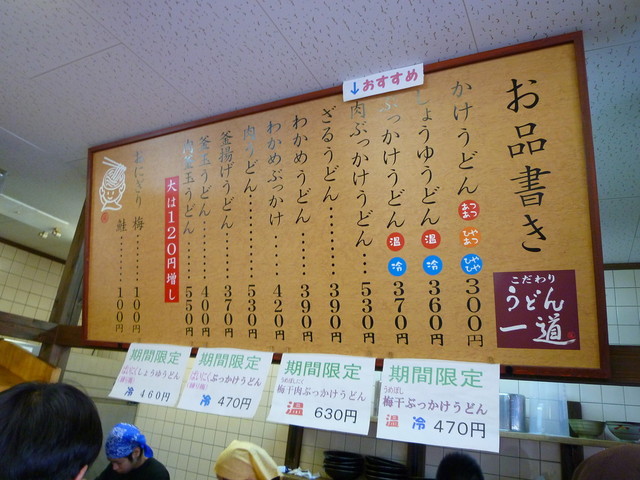 ↓おすすめ
お品書き
こだわり
うどん
一道
かけうどん あつあつ ひやあつ ひやひや 300円
しょうゆうどん 温 冷 360円
ぶっかけうどん 温 冷 370円
肉ぶっかけうどん… 530円
ざるうどん……… 390円
わかめうどん…… 390円
わかめぶっかけ… 420円
肉うどん……… 530円
釜揚げうどん…… 370円
釜玉うどん…… 400円
肉釜玉うどん…… 550円
大は120円増し
おにぎり 梅……100円
鮭……100円
期間限定
しょうゆうどん
冷 460円
期間限定
ぶっかけうどん
冷 470円
期間限定
梅干肉ぶっかけうどん
温 630円
期間限定
梅干ぶっかけうどん
温 冷 470円